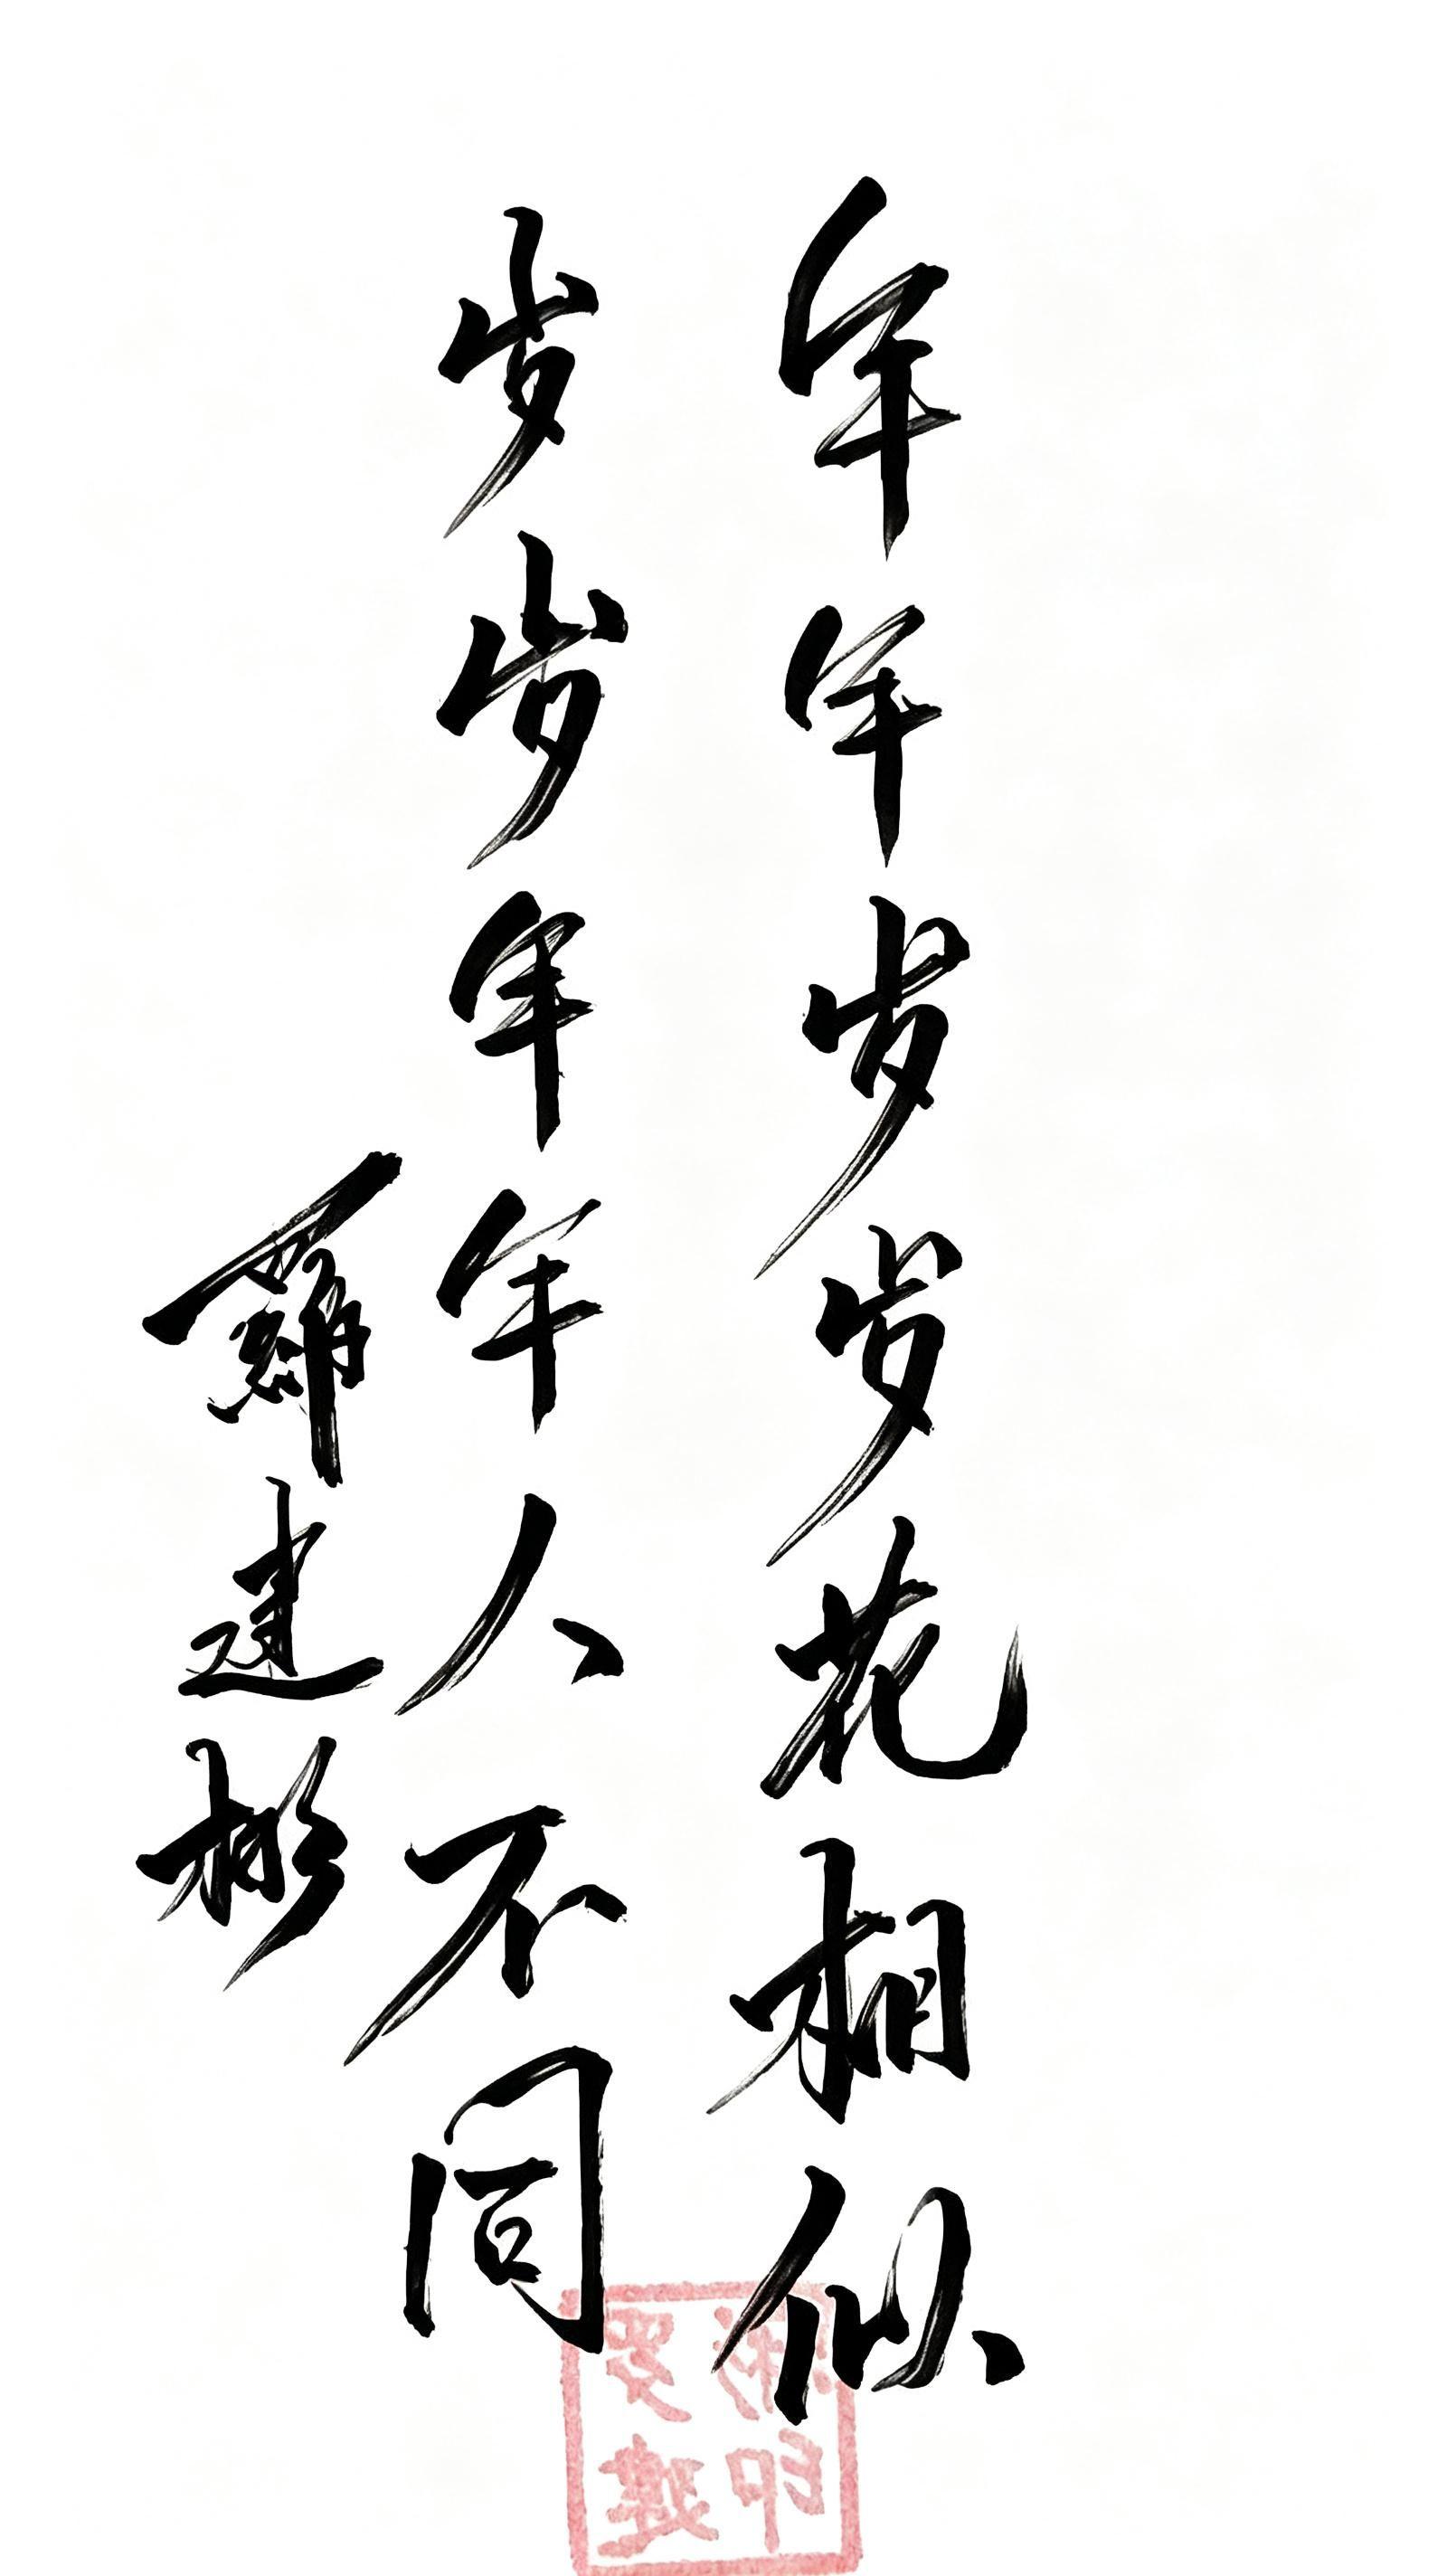 年年岁岁花相似
岁岁年年人不同
羅建彬